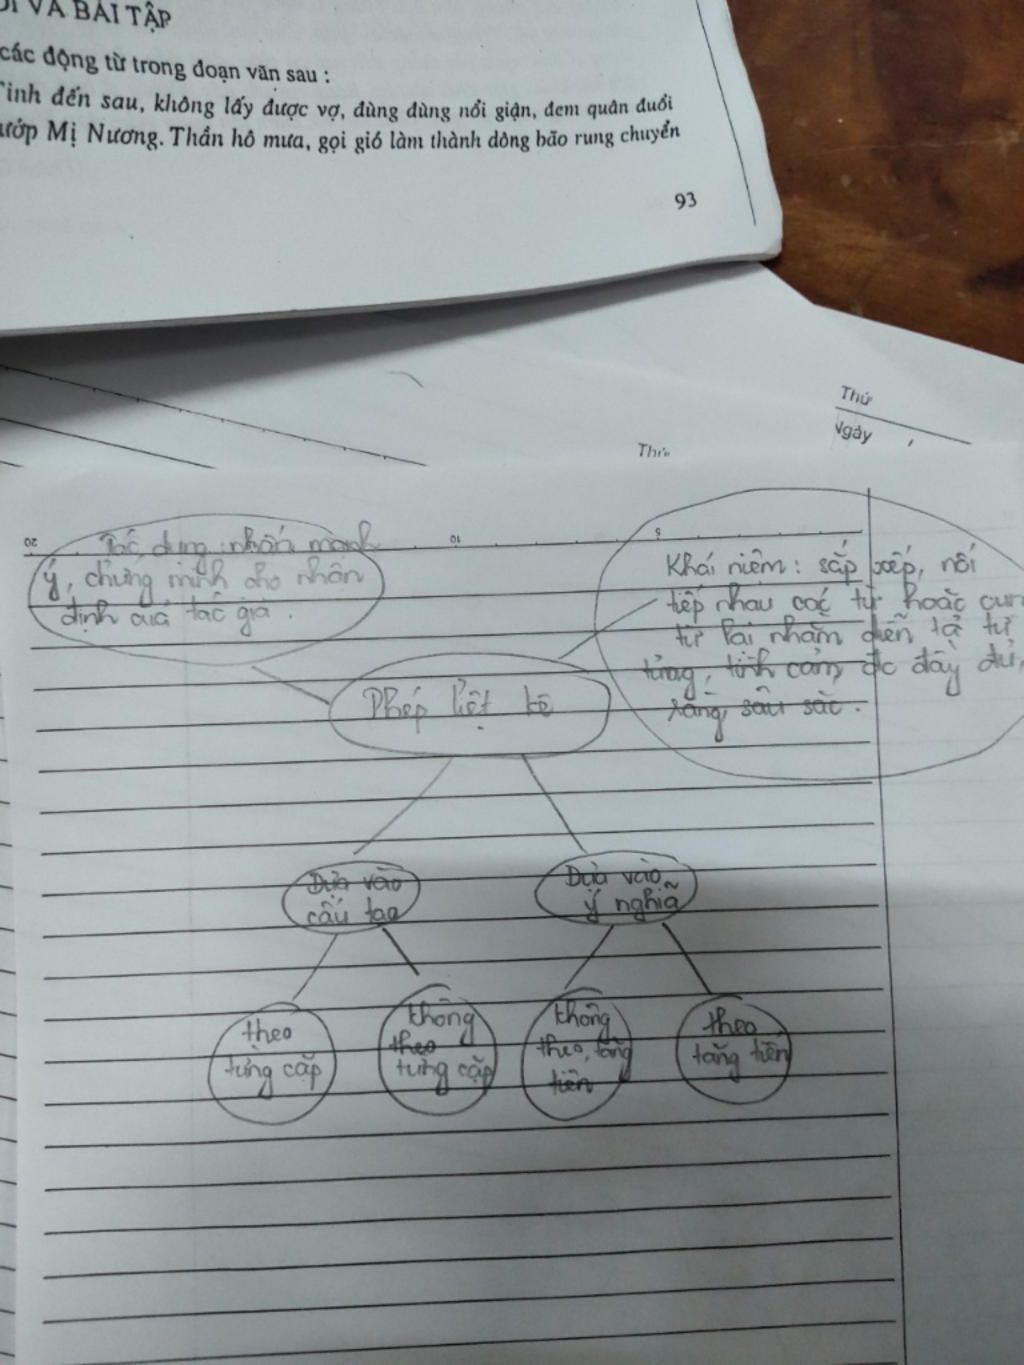 VÀ BÀI TẬP
các động từ trong đoạn văn sau :
Tinh đến sau, không lấy được vợ, đùng đùng nổi giận, đem quân đuổi
Mị Nương. Thần hô mưa, gọi gió làm thành dông bão rung chuyển
93
Thứ
Ngày
Thứ
20
10
5
Tác dụng nhấn mạnh
ý, chứng minh cho nhận
định của tác giả.
Khái niệm: sắp xếp, nối
tiếp nhau các từ hoặc cụm
từ loại nhằm diễn tả tư
tưởng, tình cảm đc đầy đủ,
sâu sắc.
Phép liệt kê
Dựa vào
cấu tạo
Dựa vào
ý nghĩa
theo
từng cặp
không
theo
từng cặp
không
theo tăng
tiến
theo
tăng tiến